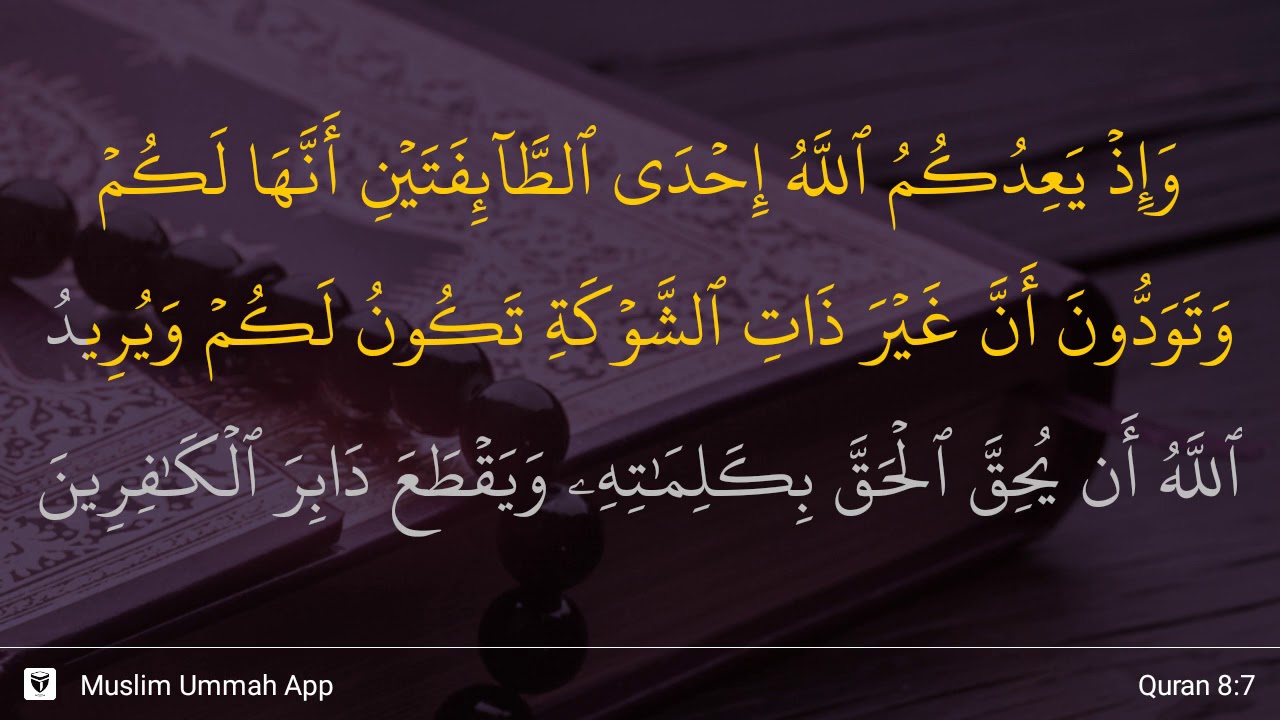 وَإِذْ يَعِدُكُمُ ٱللَّهُ إِحْدَى ٱلطَّآئِفَتَيْنِ أَنَّهَا لَكُمْ
وَتَوَدُّونَ أَنَّ غَيْرَ ذَاتِ ٱلشَّوْكَةِ تَكُونُ لَكُمْ وَيُرِيدُ
ٱللَّهُ أَن يُحِقَّ ٱلْحَقَّ بِكَلِمَـٰتِهِۦ وَيَقْطَعَ دَابِرَ ٱلْكَـٰفِرِينَ
Muslim Ummah App
Quran 8:7